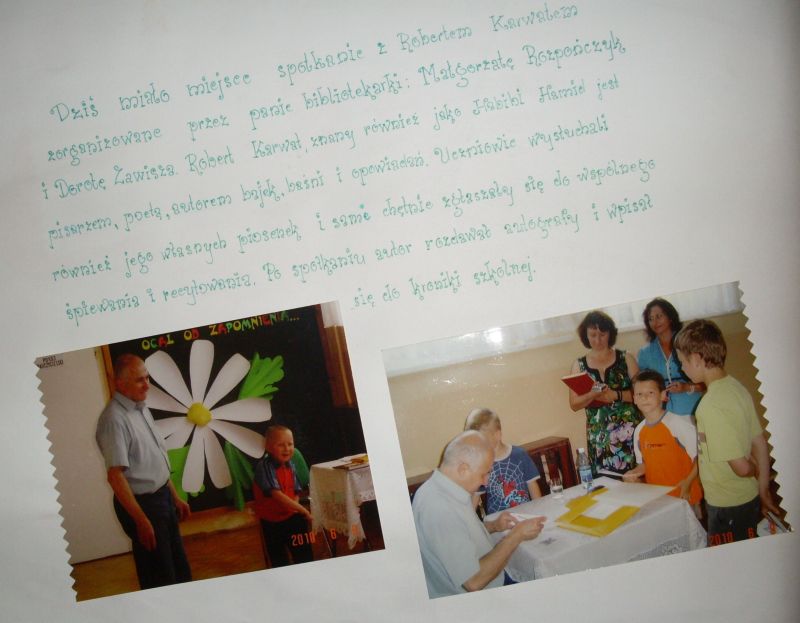 Dziś miało miejsce spotkanie z Robertem Karwatem
zorganizowane przez panie bibliotekarki: Małgorzatę Rozpończyk
i Dorotę Zawisza. Robert Karwat, znany również jako Habibi Hamid jest
pisarzem, poetą, autorem bajek, baśni i opowiadań. Uczniowie wysłuchali
również jego własnych piosenek i same chętnie zgłaszały się do wspólnego
śpiewania i recytowania. Po spotkaniu autor rozdawał autografy i wpisał
się do kroniki szkolnej.
OCAL OD ZAPOMNIENIA...
2010 6
2010 6